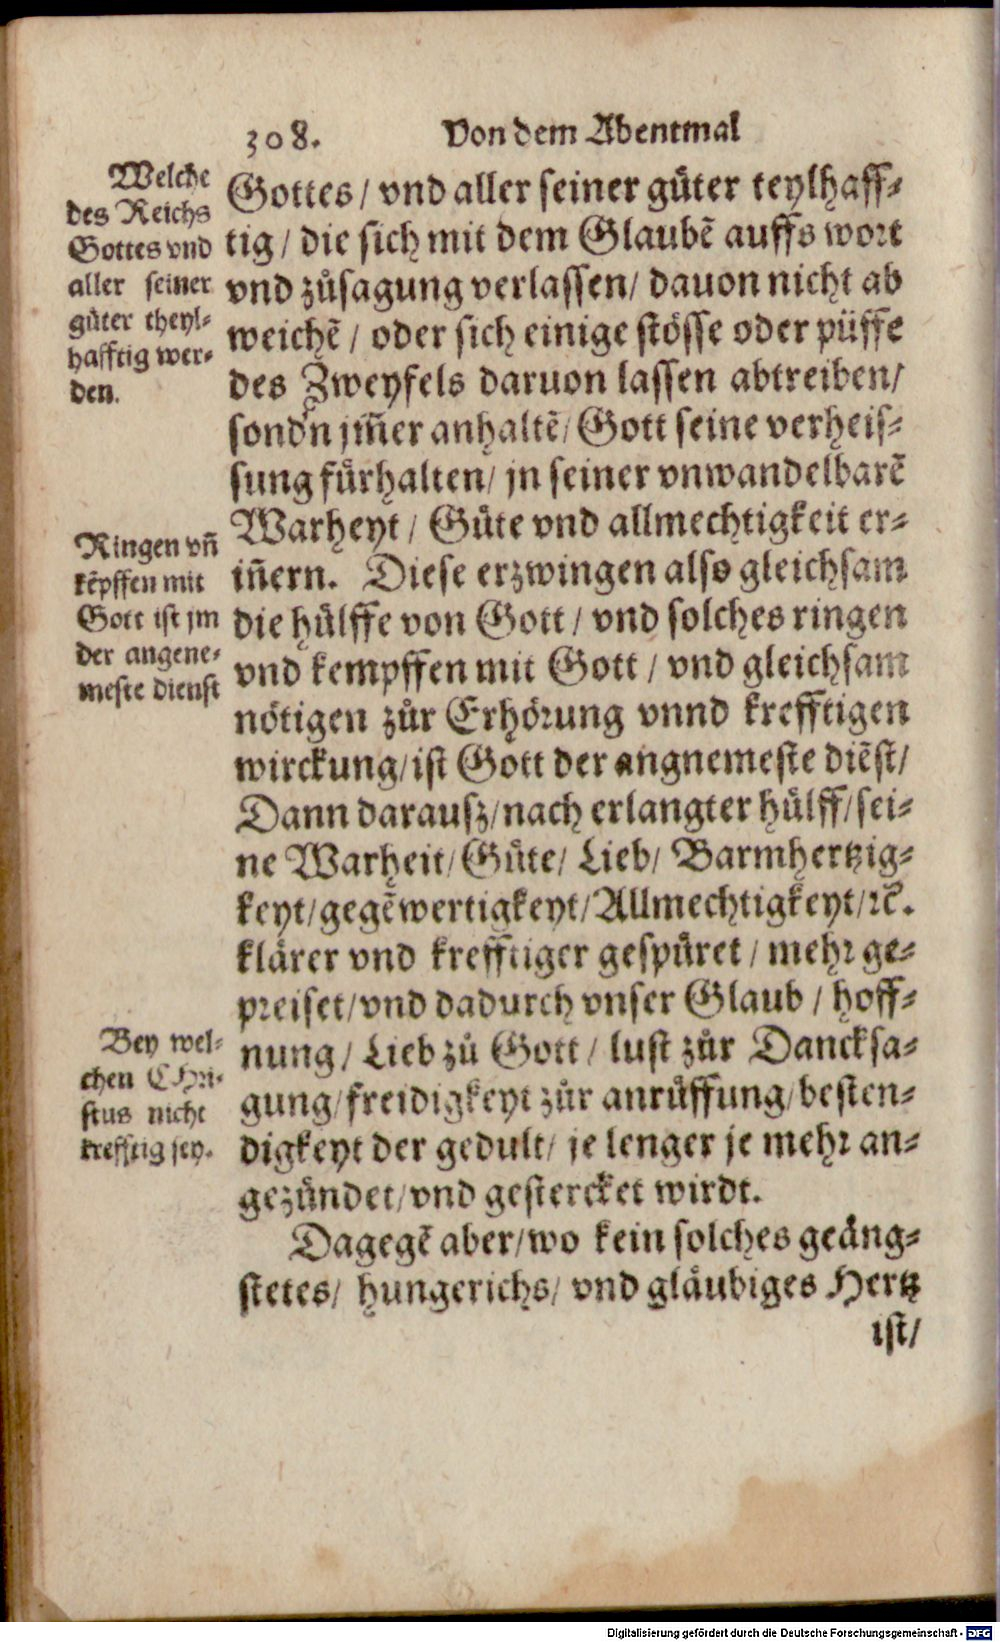 308. Von dem Abentmal
Welche
des Reichs
Gottes vnd
aller seiner
güter theyl⸗
hafftig wer⸗
den.
Gottes / vnd aller seiner güter teylhaff⸗
tig / die sich mit dem Glaubẽ auffs wort
vnd zůsagung verlassen / dauon nicht ab
weichẽ / oder sich einige stösse oder püffe
des Zweyfels daruon lassen abtreiben /
sond'n jm̃er anhaltẽ / Gott seine verheis⸗
sung fürhalten / jn seiner vnwandelbarẽ
Warheyt / Güte vnd allmechtigkeit er⸗
iñern. Diese erzwingen also gleichsam
die hülffe von Gott / vnd solches ringen
vnd kempffen mit Gott / vnd gleichsam
nötigen zůr Erhörung vnnd krefftigen
wirckung / ist Gott der angnemeste diẽst /
Dann darausz / nach erlangter hülff / sei⸗
ne Warheit / Güte / Lieb / Barmhertzig⸗
keyt / gegẽwertigkeyt / Allmechtigkeyt / ꝛc̃.
klärer vnd krefftiger gespüret / mehr ge⸗
preiset / vnd dadurch vnser Glaub / hoff⸗
nung / Lieb zů Gott / lust zůr Dancksa⸗
gung / freidigkeyt zůr anrüffung / besten⸗
digkeyt der gedult / je lenger je mehr an⸗
gezündet / vnd gestercket wirdt.
Dagegẽ aber / wo kein solches geäng⸗
stetes / hungerichs / vnd gläubiges Hertz
ist /
Ringen vñ
kẽpffen mit
Gott ist jm
der angene⸗
meste dienst
Bey wel⸗
chen CHri⸗
stus nicht
krefftig sey.
Digitalisierung gefördert durch die Deutsche Forschungsgemeinschaft - DFG